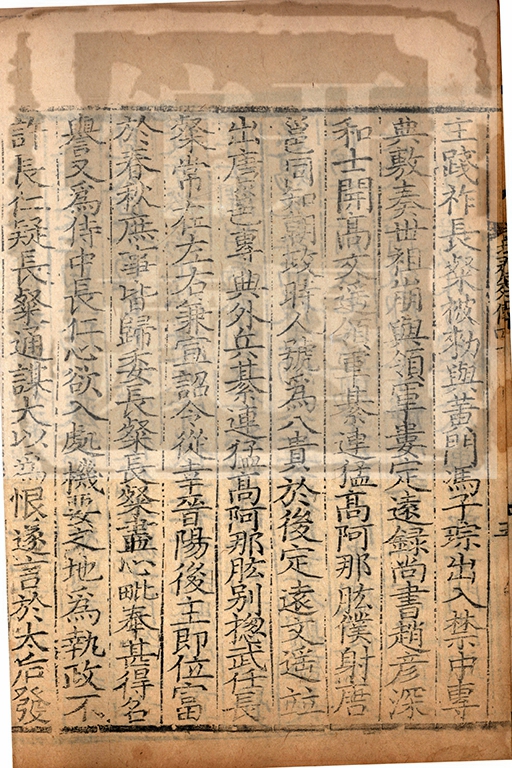 主踐祚長粲被勑與黃門馮子琮出入禁中專
典敷奏世祖崩與領軍婁定遠錄尚書趙彥深
和士開高文遙領軍綦連猛高阿那肱僕射唐
邕同知朝政時人號為八貴於後定遠文遙並
出唐邕專典外兵綦連猛高阿那肱別揔武任長
粲常在左右兼宣詔令從幸晉陽後主即位富
於春秋庶事皆歸委長粲長粲盡心毗奉甚得名
譽又為侍中長仁心欲入處機要之地為執政不
許長仁疑長粲通謀大以為恨遂言於太后發
三